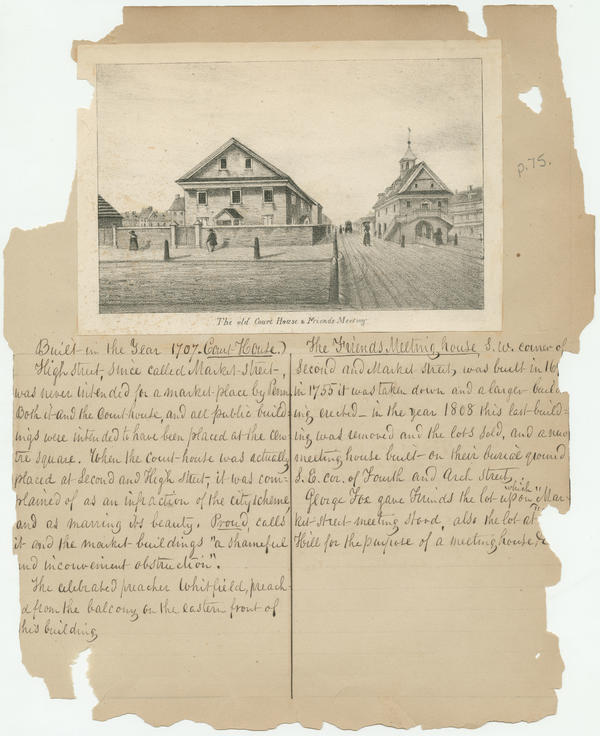 p.75.
The old Court House & Friends Meeting.
Built in the Year 1707. Court House.
High street, since called Market street,
was never intended for a market place by Penn
Both it and the Courthouse, and all public build-
ings were intended to have been placed at the cen-
tre square. When the court-house was actually
placed at Second and High Street, it was com-
plained of as an infraction of the city scheme,
and as marring its beauty. Proud, calls
it and the market buildings "a shameful
and inconvenient obstruction".
The celebrated preacher Whitfield, preach-
ed from the balcony on the eastern front of
this building
The Friends Meeting house, S.W. corner of
Second and Market street, was built in 16
in 1755 it was taken down and a larger build-
ing erected - in the year 1808 this last build-
ing was removed and the lots sold, and a new
meeting house built on their burial ground
S.E. cor. of Fourth and Arch Street,
George Fox gave Friends the lot upon which "Mar-
ket street meeting stood, also the lot at
Hill for the purpose of a meeting house, &c